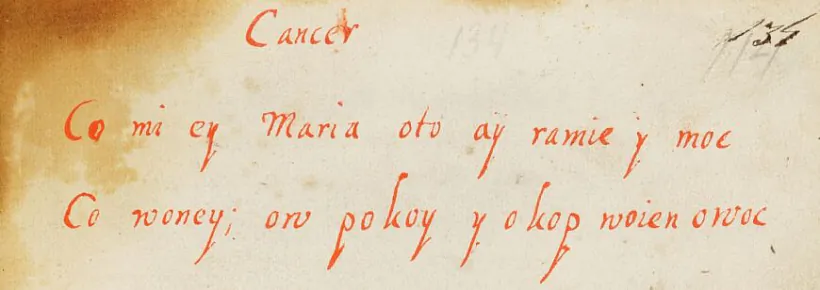 Cancer
134
Co mi ey Maria oto ay ramie y moc
Co woney; ow pokoy y okop woien owoc